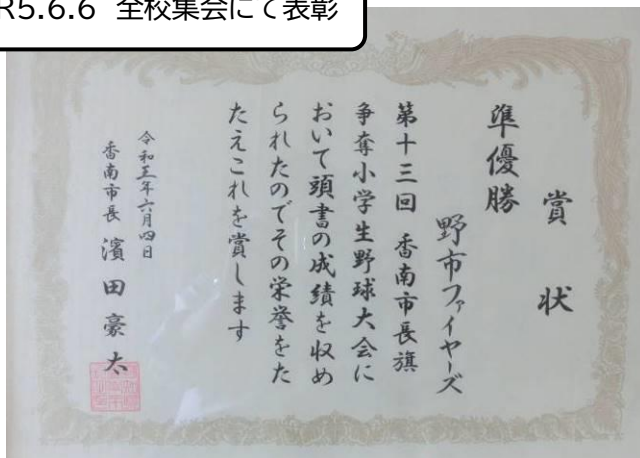 R5.6.6 全校集会にて表彰
賞状
準優勝
野市ファイヤーズ
第十三回 香南市長旗
争奪小学生野球大会に
おいて頭書の成績を収め
られたのでその栄誉をた
たえこれを賞します
令和五年六月四日
香南市長 濱田豪太